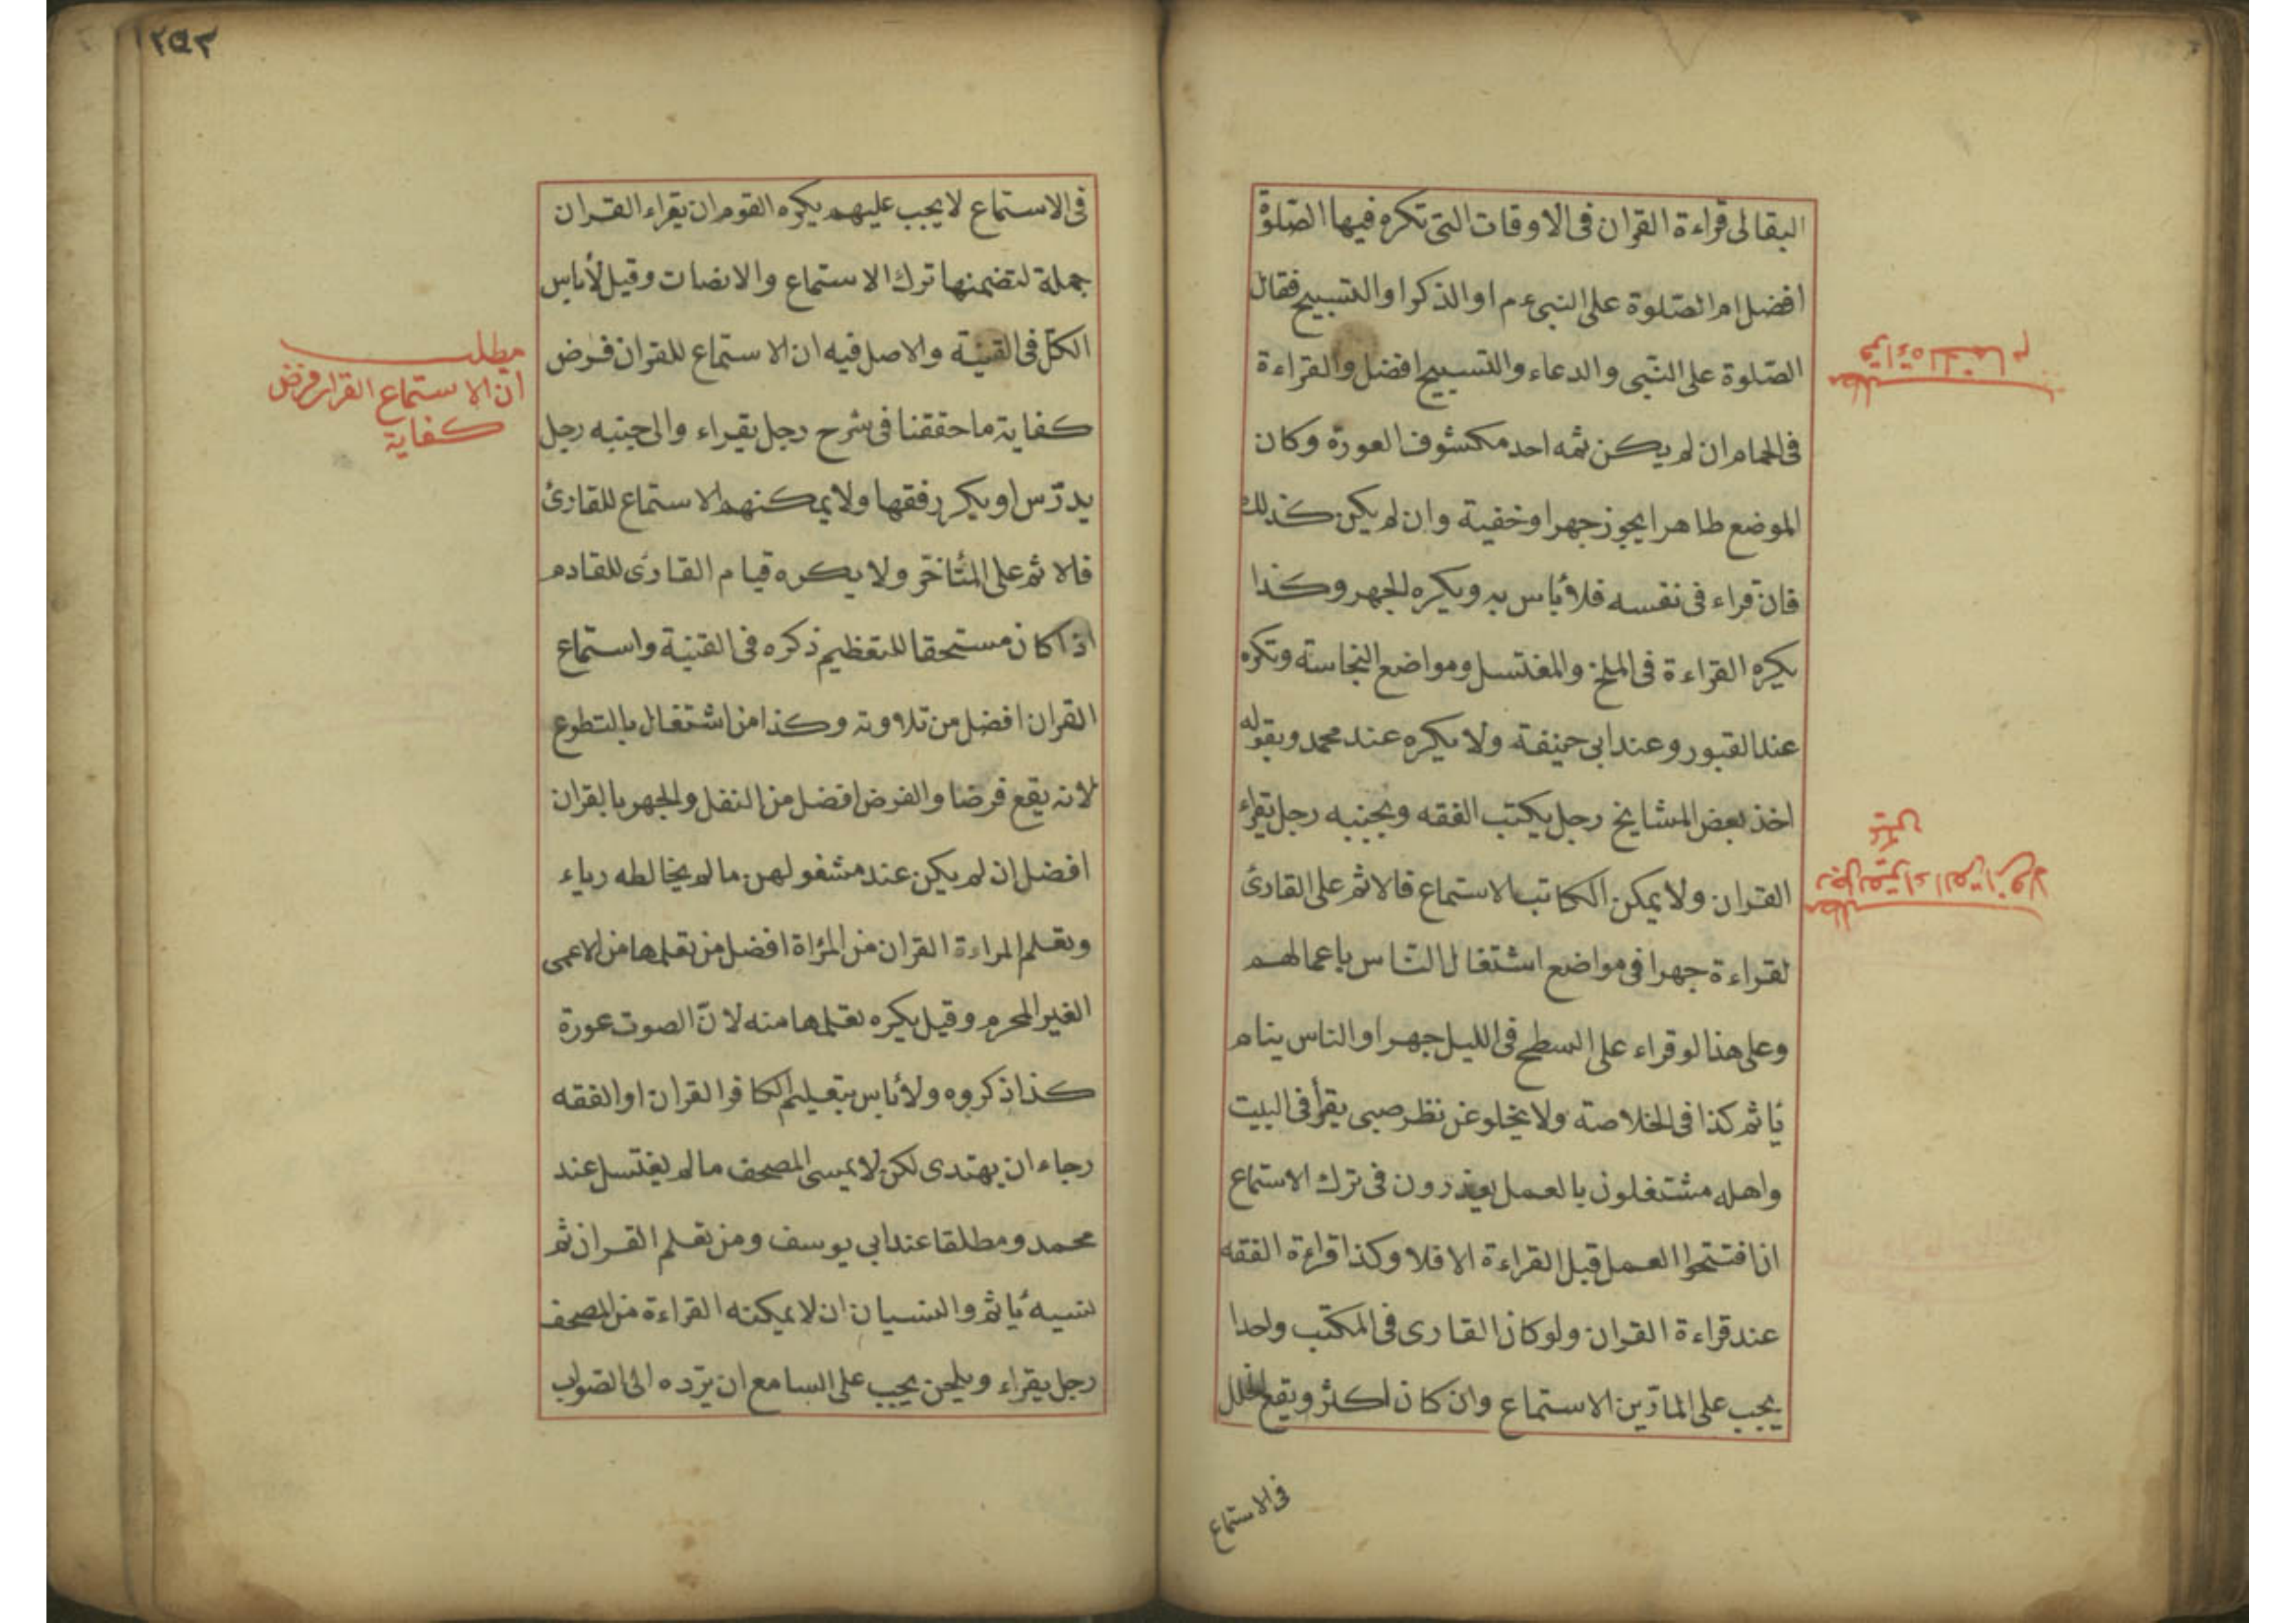 البقالى قراءة القران فى الاوقات التى تكره فيها الصّلوة
افضل ام الصّلوة على النبى ءم او الذكر او التسبيح فقال
الصّلوة على النّبى والدعاء والتسبيح افضل والقراءة
فى الحمام ان لم يكن ثمه احد مكشوف العورة وكان
الموضع طاهرا يجوز جهرا وخفية وان لم يكن كذلك
فان قراء فى نفسه فلا بأس به ويكره الجهر وكذا
يكره القراءة فى المسلخ والمغتسل ومواضع النجاسة وتكره
عند القبور وعند ابى حنيفة ولا يكره عند محمد وبقوله
اخذ بعض المشايخ رجل يكتب الفقه وبجنبه رجل يقراء
القران ولا يمكن الكاتب الاستماع فالاثم على القارئ
لقراءة جهرا فى مواضع اشتغال النّاس باعمالهم
وعلى هذا لو قراء على السطح فى الليل جهرا والناس ينام
يأثم كذا فى الخلاصة ولا يخلو عن نظر صبى يقرأ فى البيت
واهله مشتغلون بالعمل يعذرون فى ترك الاستماع
ان افتتحوا العمل قبل القراءة الا فلا وكذا قراءة الفقه
عند قراءة القران ولو كان القارى فى المكتب واحدا
يجب على المارّين الاستماع وان كان اكثر ويقع الخلل
فى الاستماع
قراءة فى الحمام
مطلب
رجل يقراء القران ولا
مطلب
١٢٥٣
فى الاستماع لا يجب عليهم يكره القوم ان يقراء القران
جملة لتضمنها ترك الاستماع والانصات وقيل لأباس
الكل فى القنية والاصل فيه ان الاستماع للقران فرض
كفاية ما حققنا فى شرح رجل يقراء والى جنبه رجل
يدرّس او يكرر فقها ولا يمكنهم الاستماع للقارئ
فالاثم على المتأخّر ولا يكره قيام القارى للقادم
اذا كان مستحقا للتعظيم ذكره فى القنية واستماع
القران افضل من تلاوته وكذا من اشتغال بالتطوع
لانه يقع فرضا والفرض افضل من النفل والجهر بالقران
افضل ان لم يكن عند مشغولهن ما لم يخالطه رياء
وتعلم المراءة القران من المرأة افضل من تعلمها من الاعمى
الغير المحرم وقيل يكره تعلمها منه لانّ الصوت عورة
كذا ذكروه ولأباس بتعليم الكافر القران او الفقه
رجاء ان يهتدى لكن لا يمسى المصحف ما لم يغتسل عند
محمد ومطلقا عند ابى يوسف ومن تعلم القران ثم
نسيه يأثم والنسيان ان لا يمكنه القراءة من المصحف
رجل يقراء ويلحن يجب على السامع ان يردّه الى الصّواب
مطلب
ان الاستماع القران فرض
كفاية